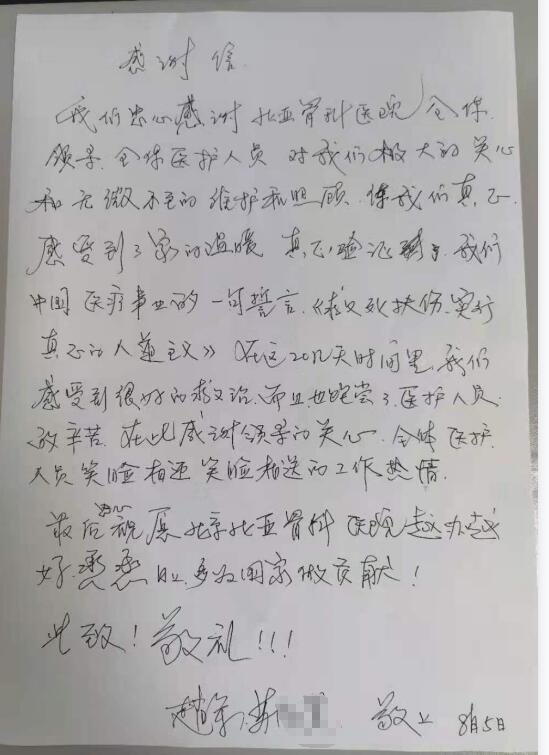 感谢信
我们忠心感谢北亚骨科医院全体
领导、全体医护人员对我们极大的关心
和无微不至的维护和照顾、使我们真正
感受到了家的温暖 真正验证了我们
中国医疗事业的一句誓言、《救死扶伤、实行
真正的人道主义》在这20几天时间里、我们
感受到很好的救治、而且也 尝了医护人员
辛苦、在此感谢领导的关心、全体医护
人员笑脸相迎笑脸相送的工作热情、
最后衷心祝愿北京北亚骨科医院越办越
好、蒸蒸日上、多为国家做贡献！
此致！敬礼！！！
敬上 8月5日